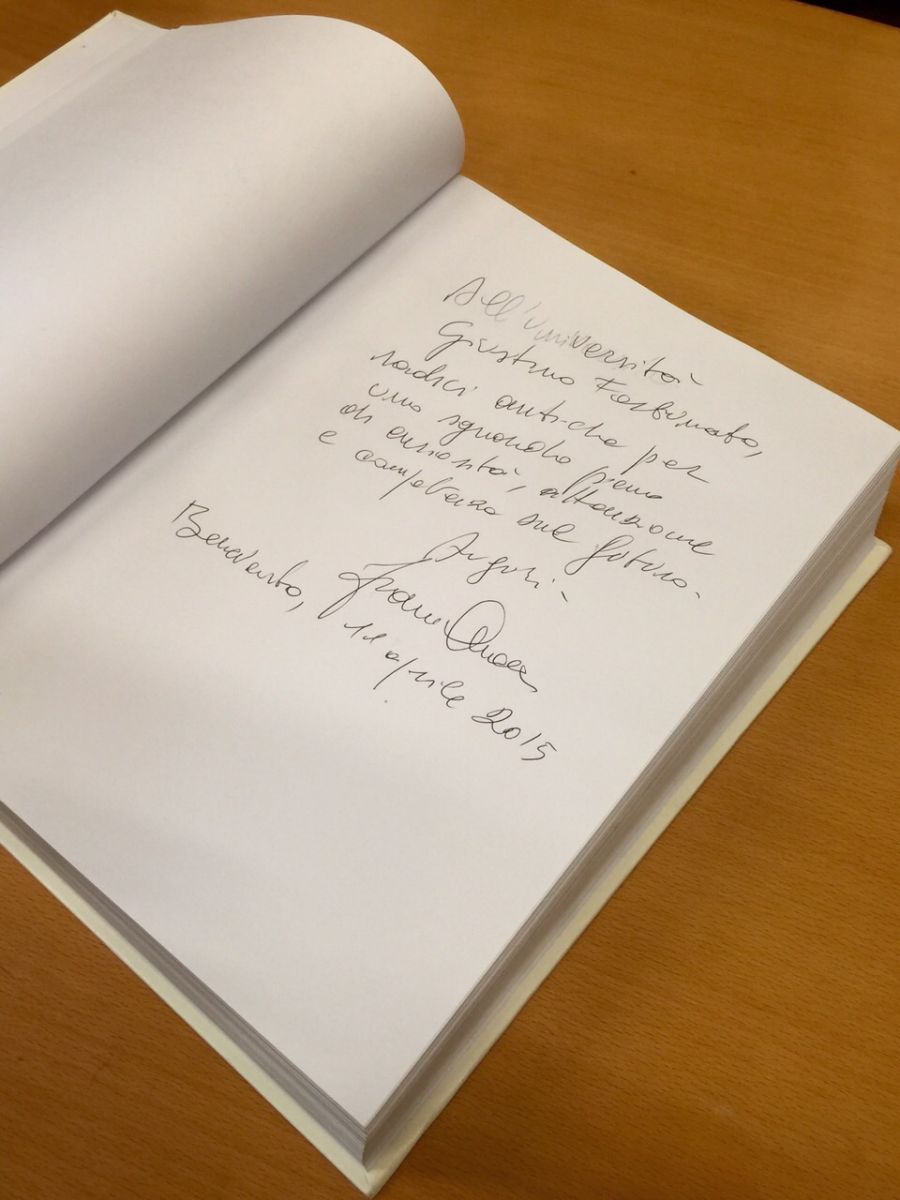 All'Università
Giustino Fortunato,
radici antiche per
uno sguardo pieno
di curiosità, attenzione
e competenza sul futuro.
Auguri
Benevento, 11 aprile 2015